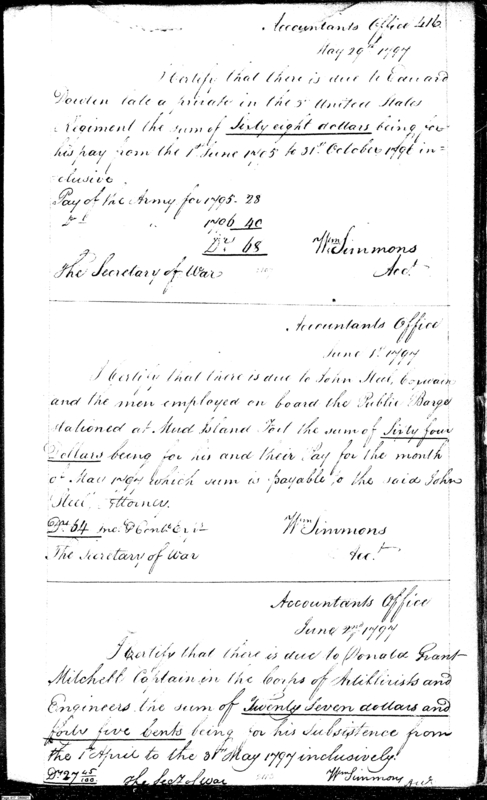 Accountants Office 416.
May 29th 1797
I Certify that there is due to Edward
Dowden late a private in the 3d United States
Regiment the sum of Sixty eight dollars being for
his pay from the 1st June 1795 to 31st October 1796 in-
clusive
Pay of the Army for 1795. 28
Do " 1796 40
Drs 68
Wm Simmons
Acct
The Secretary of War
Accountants Office
June 1st 1797
I Certify that there is due to John Steel, Coxswain
and the men employed on board the Public Barge
stationed at Mud Island Fort the sum of Sixty four
Dollars being for his and their Pay for the month
of May 1797 which sum is payable to the said John
Steel Attorney.
Drs 64
Wm Simmons
Acct
The Secretary of War
Accountants Office
June 2nd 1797
I Certify that there is due to Donald Grant
Mitchell Captain in the Corps of Artillerists and
Engineers the sum of Twenty Seven dollars and
forty five Cents being for his subsistence from
the 1st April to the 31st May 1797 inclusively.
Drs 27 45/100
The Secy of War
Wm Simmons
Acct